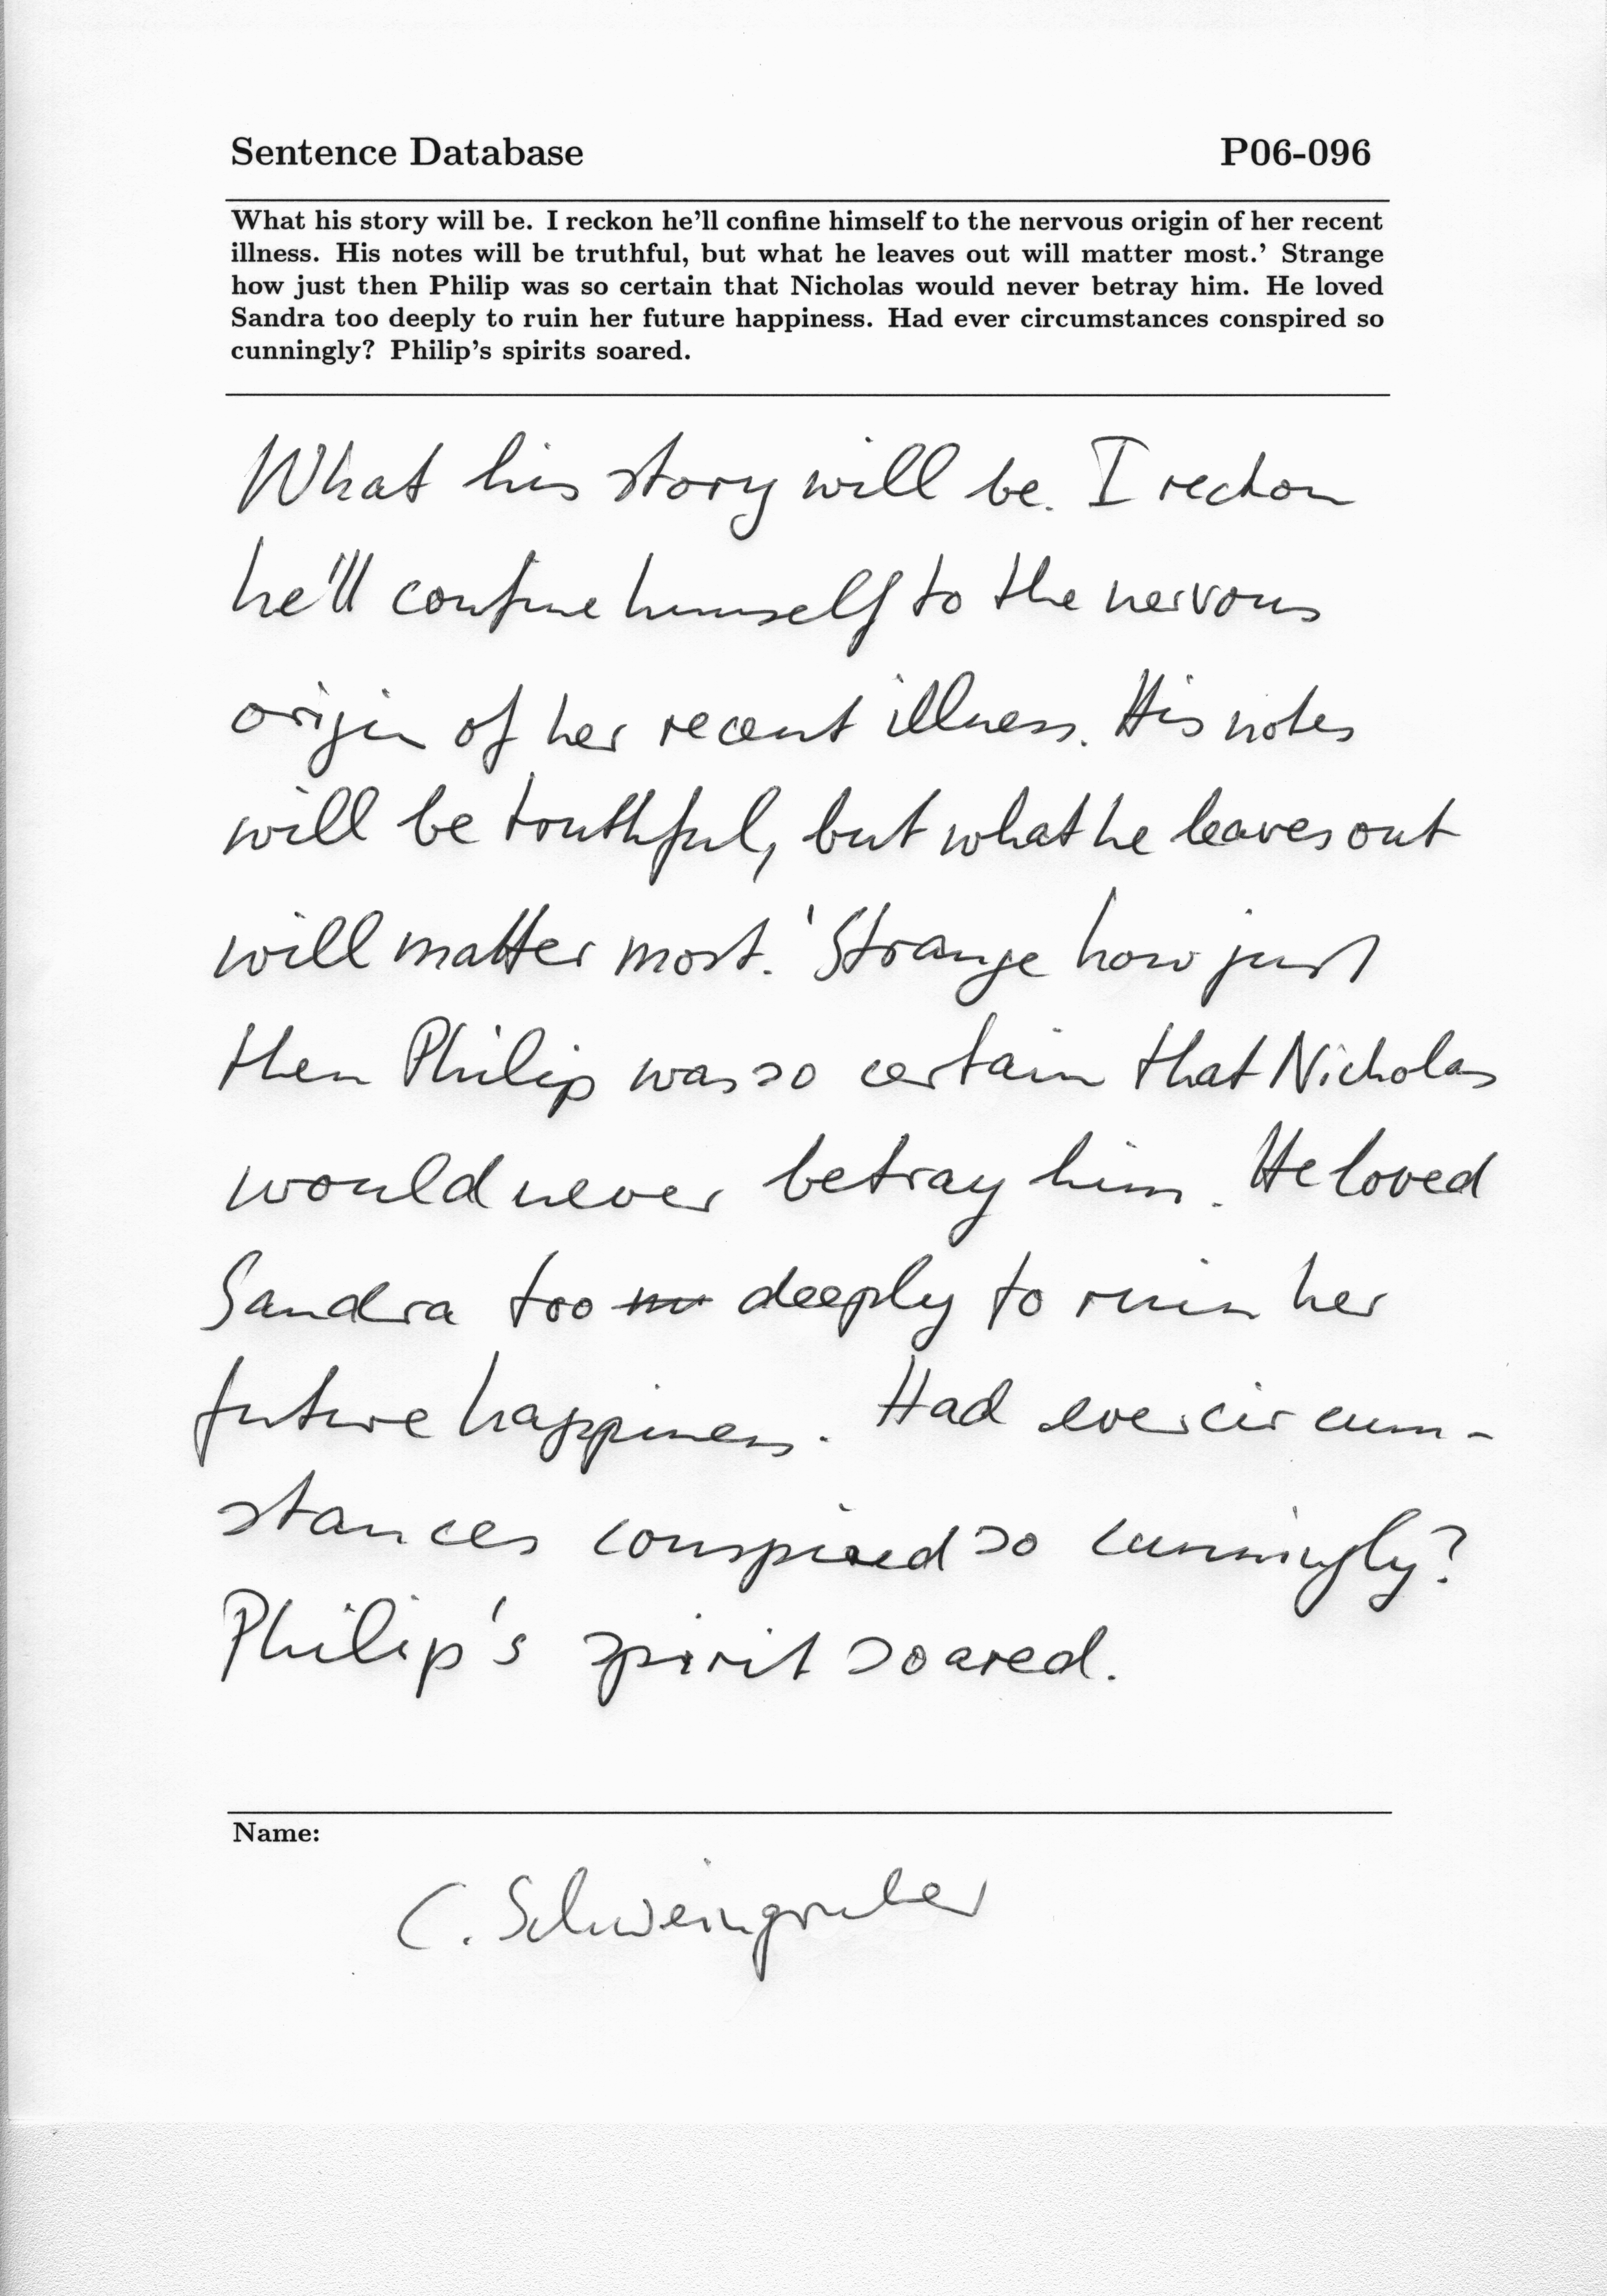 Sentence Database P06-096
What his story will be. I reckon he'll confine himself to the nervous origin of her recent
illness. His notes will be truthful, but what he leaves out will matter most.' Strange
how just then Philip was so certain that Nicholas would never betray him. He loved
Sandra too deeply to ruin her future happiness. Had ever circumstances conspired so
cunningly? Philip's spirits soared.
What his story will be. I reckon
he'll confine himself to the nervous
origin of her recent illness. His notes
will be truthful, but what he leaves out
will matter most.' Strange how just
then Philip was so certain that Nicholas
would never betray him. He loved
Sandra too deeply to ruin her
future happiness. Had ever circum-
stances conspired so cunningly?
Philip's spirit soared.
Name:
C. Schweingruber